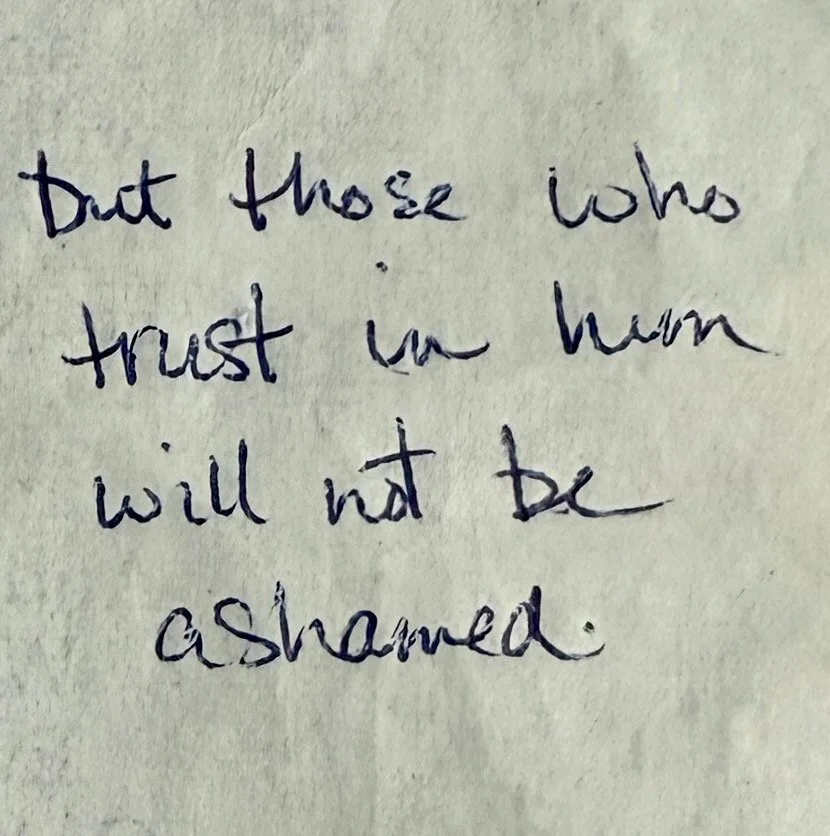 but those who
trust in him
will not be
ashamed.